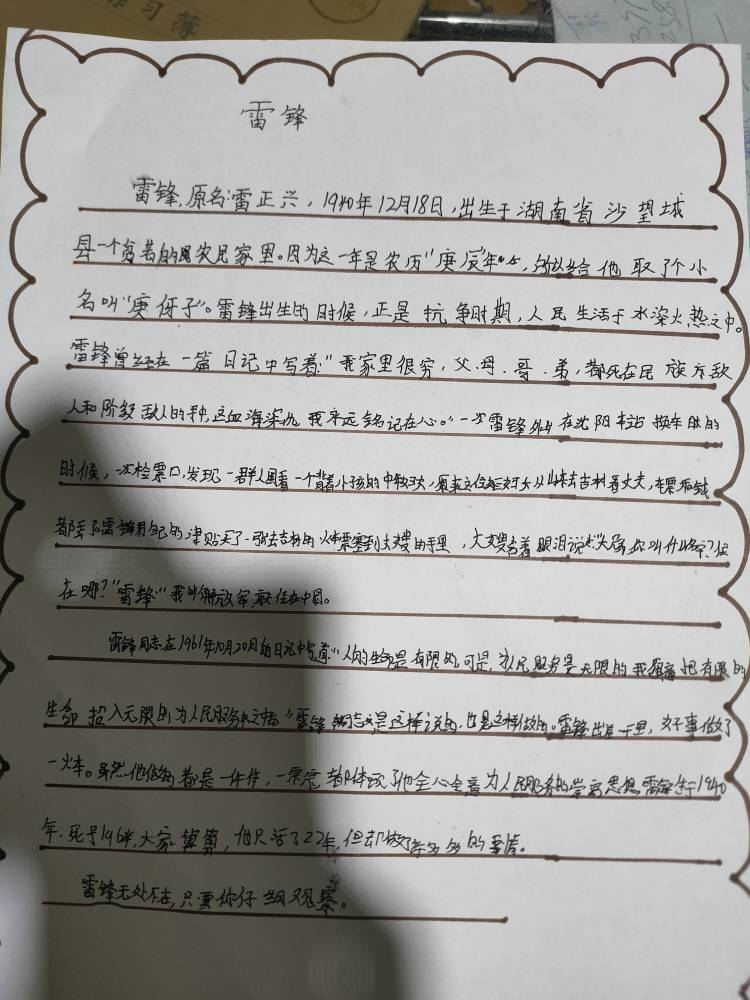 练习簿
雷锋
雷锋,原名:雷正兴，1940年12月18日,出生于湖南省沙望城
县一个贫苦的农民家里。因为这一年是农历"庚辰年",所以给他取了个小
名叫"庚伢子"。雷锋出生的时候，正是抗争时期，人民生活于水深火热之中。
雷锋曾经在一篇日记中写着:"我家里很穷，父、母、哥、弟，都死在民族方敌
人和阶级敌人的手中,这血海深仇,我永远铭记在心。"一次雷锋外出在沈阳车站换车的
时候，一次检票口,发现一群人围着一个背着小孩的中年妇女,原来这位妇女从山东去吉林看丈夫,车票和钱
都丢了雷锋用自己的津贴买了一张去吉林的火车票塞到大嫂的手里，大嫂含着眼泪说:"大兄弟你叫什么名字?住
在哪?""雷锋"我叫解放军,就住在中国。
雷锋同志在1961年10月20日的日记中写着:"人的生命是有限的,可是,为人民服务是无限的我要把有限的
生命投入无限的为人民服务之中去"雷锋同志是这样说的,也是这样做的。雷锋出差一千里,好事做了
一火车。虽然他做的都是一件件，一桩桩都体现了他全心全意为人民服务的崇高思想,雷锋生于1940
年,死于196年,大家算算，他只活了22年,但却做了许多多的事情。
雷锋无处不在,只要你仔细观察。